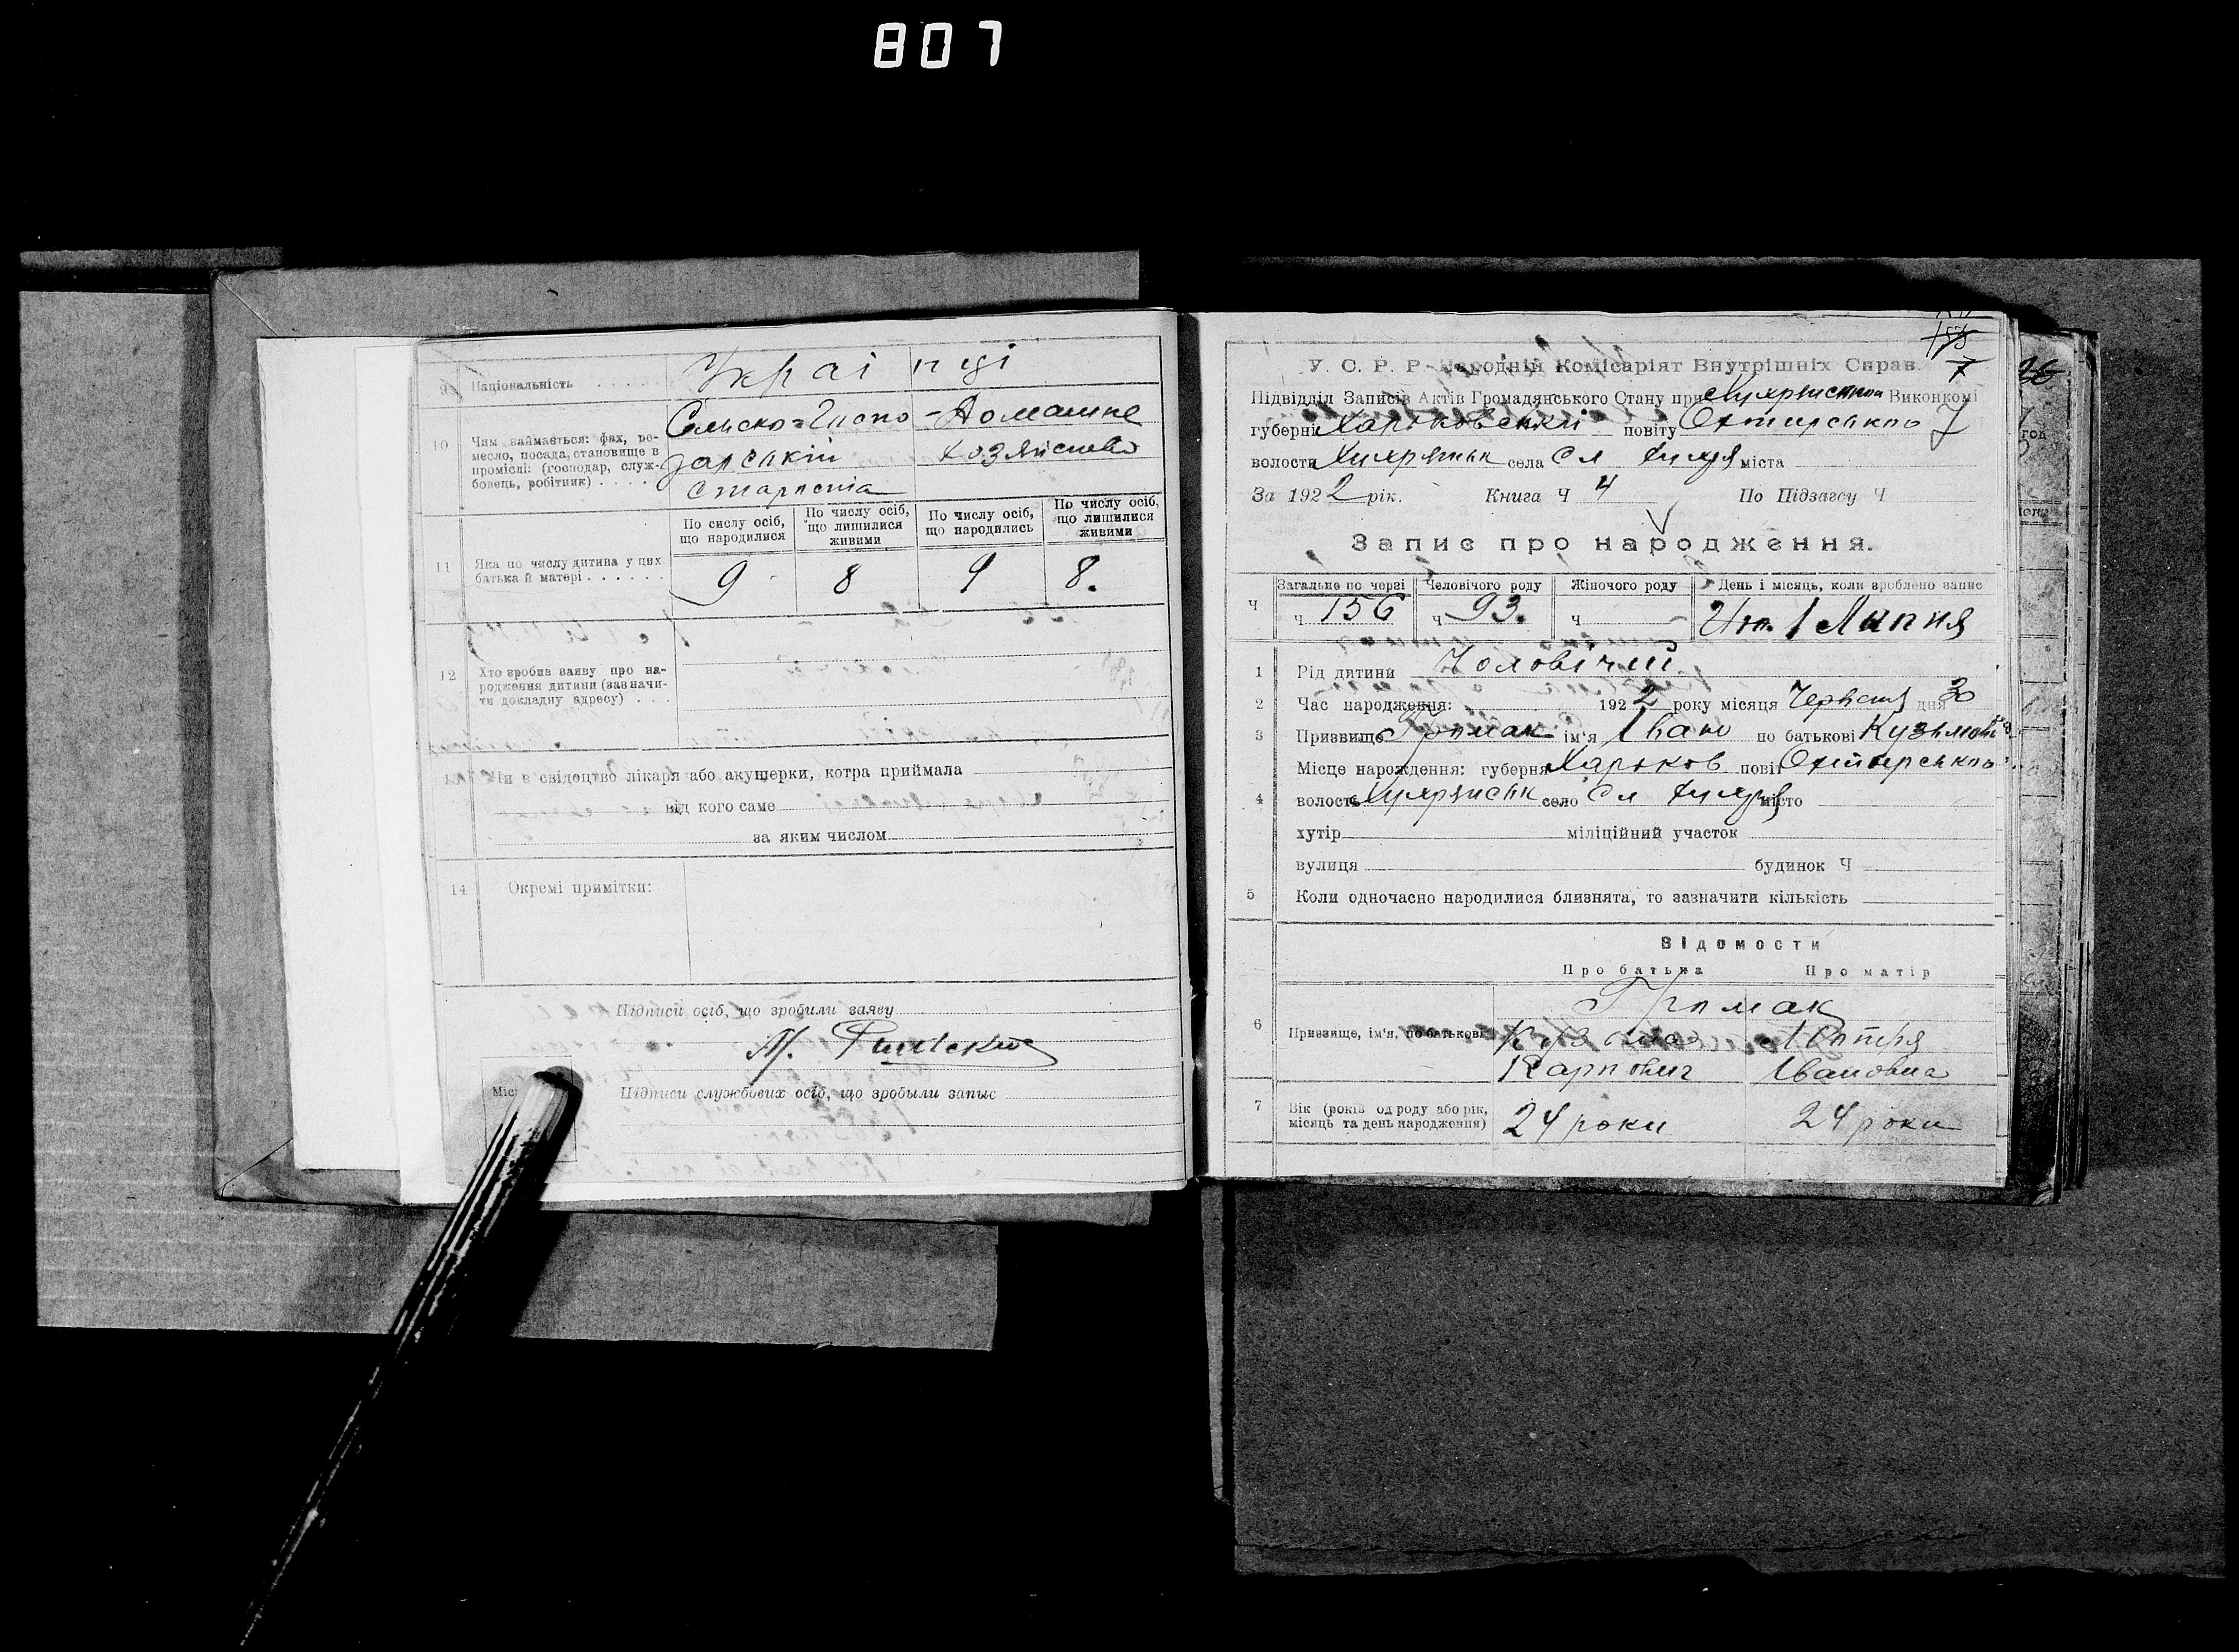 807
9 Національність . . . . Украінці
10 Чим займається: фах, ре-
месло, посада, становище в
проміслі: (господар, служ-
бовець, робітник) . . . .
Сельско=Госпо - Домашнє
дарський хозяйство
По сислу осіб, що народилися
По числу осіб, що лишилися живими
По числу осіб, що народились
По числу осіб, що лишилися живими
11 Яка по числу дитина у цих
батька й матері . . . . . . .
9 8 9 8.
12 Хто зробив заяву про на-
родження дитини (зазначи-
ти докладну адресу) . . .
Чи є свідоцтво лікаря або акушерки, котра приймала
від кого саме
за яким числом
14 Окремі примітки:
Підписи осіб, що зробили заяву
Підписи службових осіб, що зробыли запыс
Міс
У. С. Р. Р. Народній Комісаріят Внутрішніх Справ.
7
Підвідділ Записів Актів Громадянського Стану при Виконкомі
губерні Харьковськи повіту Охтирського 7
волости села Сл міста
За 1922 рік. Книга Ч 4 По Підзагсу Ч
Запис про народження.
Ч Загальне по черзі Человічого роду Жіночого роду День і місяць, коли вроблено запис
ч 156 ч 93. ч 1 Липня
1 Рід дитини Чоловічий
2 Час народження: 1922 року місяця Червня дня 30
3 Призвище Громак ім'я Іван по батькові Кузьмович
Місце нарождення: губерня Харьков повіт Охтирського
4 волость село Сл місто
хутір міліційний участок
вулиця будинок Ч
5 Коли одночасно народилися близнята, то зазначити кількість
Відомости
Про батька Про матір
Громак
6 Призвище, ім'я, по батькові Кузьма
Карпович Івановна
7 Вік (років од роду або рік,
місяць та день народження) 24 роки 24 роки